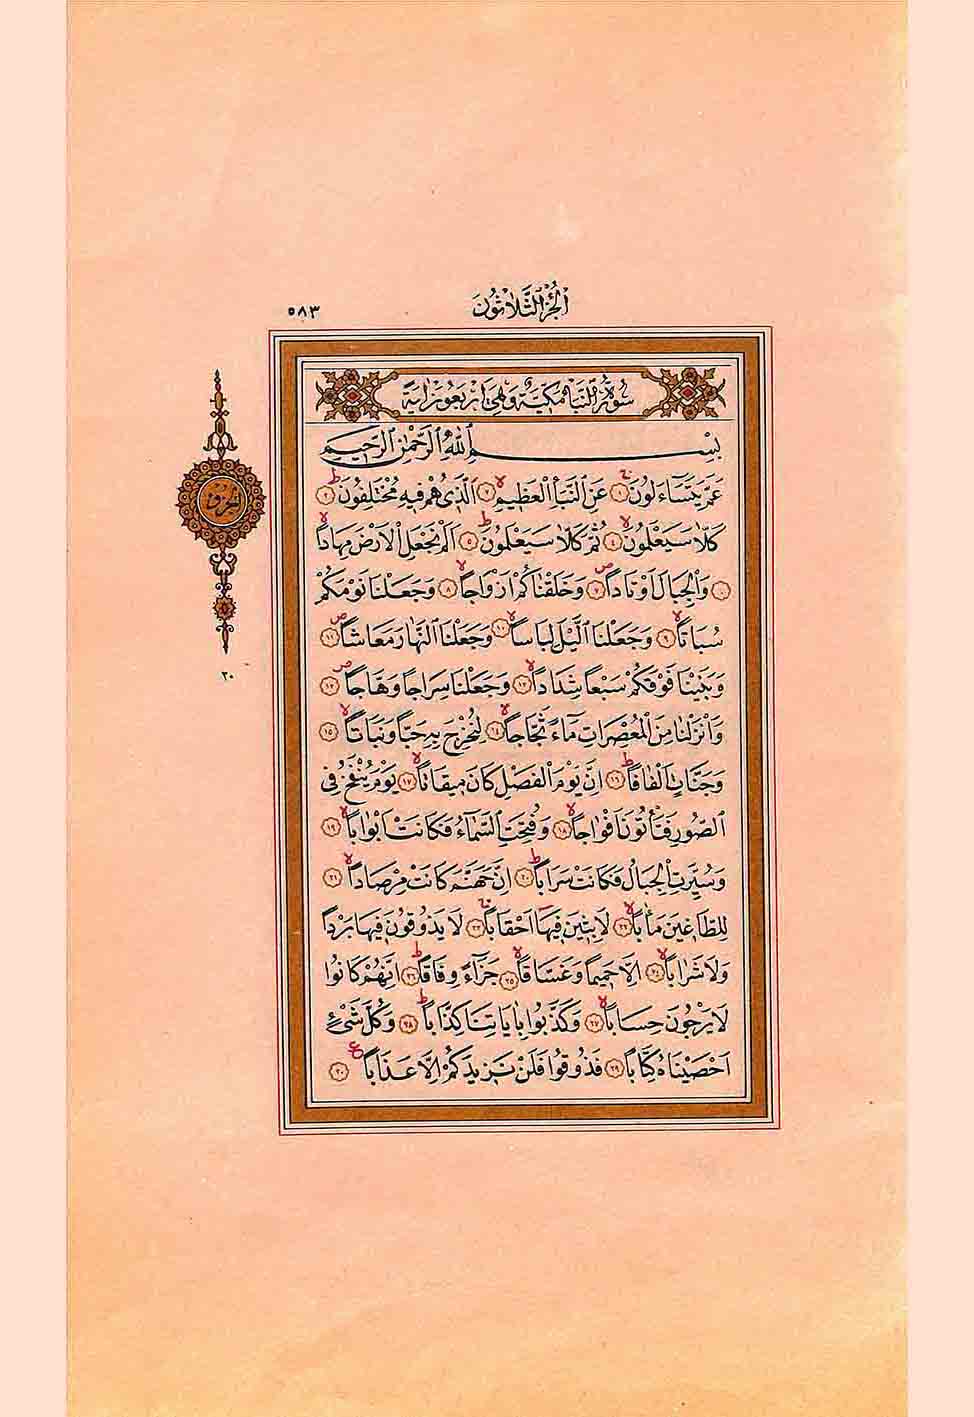 الجزء الثلاثون
٥٨٣
سورة النبإ مكية وهي اربعون اية
بسم الله الرحمن الرحيم
عَمَّ يَتَسَاءَلُونَ ١ عَنِ النَّبَأِ الْعَظِيمِ ٢ اَلَّذِي هُمْ فِيهِ مُخْتَلِفُونَ ٣
كَلَّا سَيَعْلَمُونَ ٤ ثُمَّ كَلَّا سَيَعْلَمُونَ ٥ اَلَمْ نَجْعَلِ الْاَرْضَ مِهَادًا
٦ وَالْجِبَالَ اَوْتَادًا ٧ وَخَلَقْنَاكُمْ اَزْوَاجًا ٨ وَجَعَلْنَا نَوْمَكُمْ
سُبَاتًا ٩ وَجَعَلْنَا الَّيْلَ لِبَاسًا ١٠ وَجَعَلْنَا النَّهَارَ مَعَاشًا ١١
وَبَنَيْنَا فَوْقَكُمْ سَبْعًا شِدَادًا ١٢ وَجَعَلْنَا سِرَاجًا وَهَّاجًا ١٣
وَاَنْزَلْنَا مِنَ الْمُعْصِرَاتِ مَاءً ثَجَّاجًا ١٤ لِنُخْرِجَ بِهِ حَبًّا وَنَبَاتًا ١٥
وَجَنَّاتٍ اَلْفَافًا ١٦ اِنَّ يَوْمَ الْفَصْلِ كَانَ مِيقَاتًا ١٧ يَوْمَ يُنْفَخُ فِي
الصُّورِ فَتَأْتُونَ اَفْوَاجًا ١٨ وَفُتِحَتِ السَّمَاءُ فَكَانَتْ اَبْوَابًا ١٩
وَسُيِّرَتِ الْجِبَالُ فَكَانَتْ سَرَابًا ٢٠ اِنَّ جَهَنَّمَ كَانَتْ مِرْصَادًا ٢١
لِلطَّاغِينَ مَاٰبًا ٢٢ لَابِثِينَ فِيهَا اَحْقَابًا ٢٣ لَا يَذُوقُونَ فِيهَا بَرْدًا
وَلَا شَرَابًا ٢٤ اِلَّا حَمِيمًا وَغَسَّاقًا ٢٥ جَزَاءً وِفَاقًا ٢٦ اِنَّهُمْ كَانُوا
لَا يَرْجُونَ حِسَابًا ٢٧ وَكَذَّبُوا بِاٰيَاتِنَا كِذَّابًا ٢٨ وَكُلَّ شَيْءٍ
اَحْصَيْنَاهُ كِتَابًا ٢٩ فَذُوقُوا فَلَنْ نَزِيدَكُمْ اِلَّا عَذَابًا ٣٠
الجزؤ
٣٠